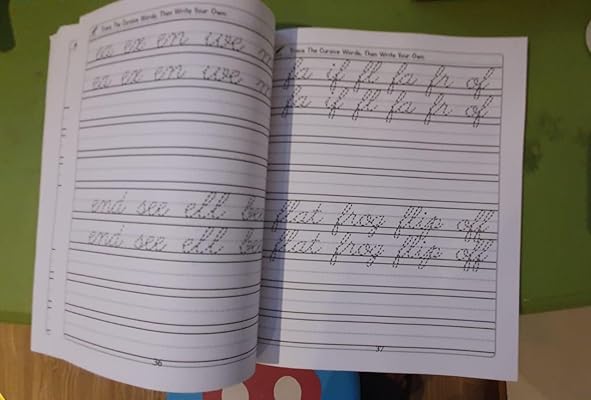 Trace The Cursive Words, Then Write Your Own:
ea ex en we
ea ex en we
end see ell be
end see ell be
36
Trace The Cursive Words, Then Write Your Own:
if fl fa fr of
if fl fa fr of
flat frog flip off
flat frog flip off
37